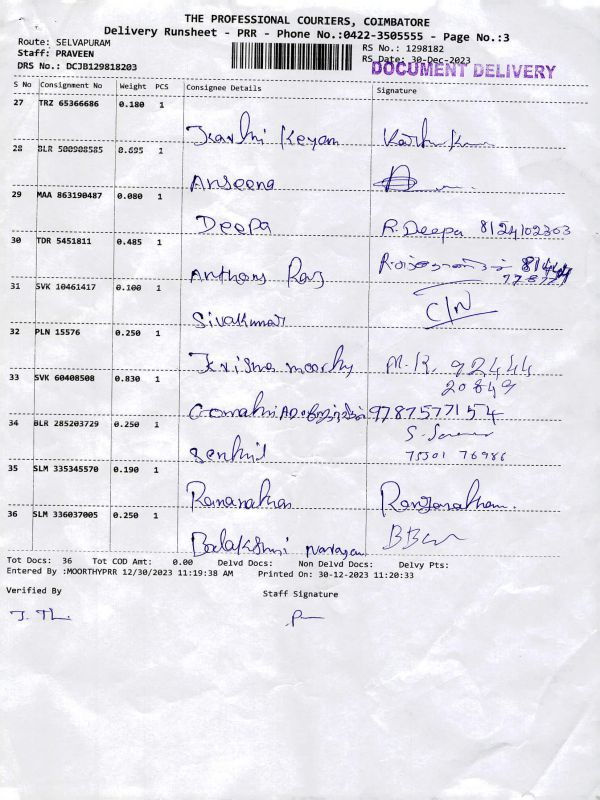 THE PROFESSIONAL COURIERS, COIMBATORE
Delivery Runsheet - PRR - Phone No.:0422-3505555 - Page No.:3
Route: SELVAPURAM RS No.: 1298182
Staff: PRAVEEN RS Date: 30-Dec-2023
DRS No.: DCJB129818203 DOCUMENT DELIVERY
S No Consignment No Weight PCS Consignee Details Signature
27 TRZ 65366686 0.180 1
Karthi Keyan
28 BLR 500908585 0.695 1
Anseena
29 MAA 863190487 0.080 1
Deepa R.Deepa 8124102303
30 TDR 5451811 0.485 1
Anthony Raj
31 SVK 10461417 0.100 1
Sivakumar
32 PLN 15576 0.250 1
Krishna moorthy M.K. 92444
20849
33 SVK 60408508 0.830 1
Gomathi 9787577154
34 BLR 285203729 0.250 1
Senthil 75301 76986
35 SLM 335345570 0.190 1
Rananathan Ranganathan.
36 SLM 336037005 0.250 1
Narayan
Tot Docs: 36 Tot COD Amt: 0.00 Delvd Docs: Non Delvd Docs: Delvy Pts:
Entered By :MOORTHYPRR 12/30/2023 11:19:38 AM Printed On: 30-12-2023 11:20:33
Verified By Staff Signature